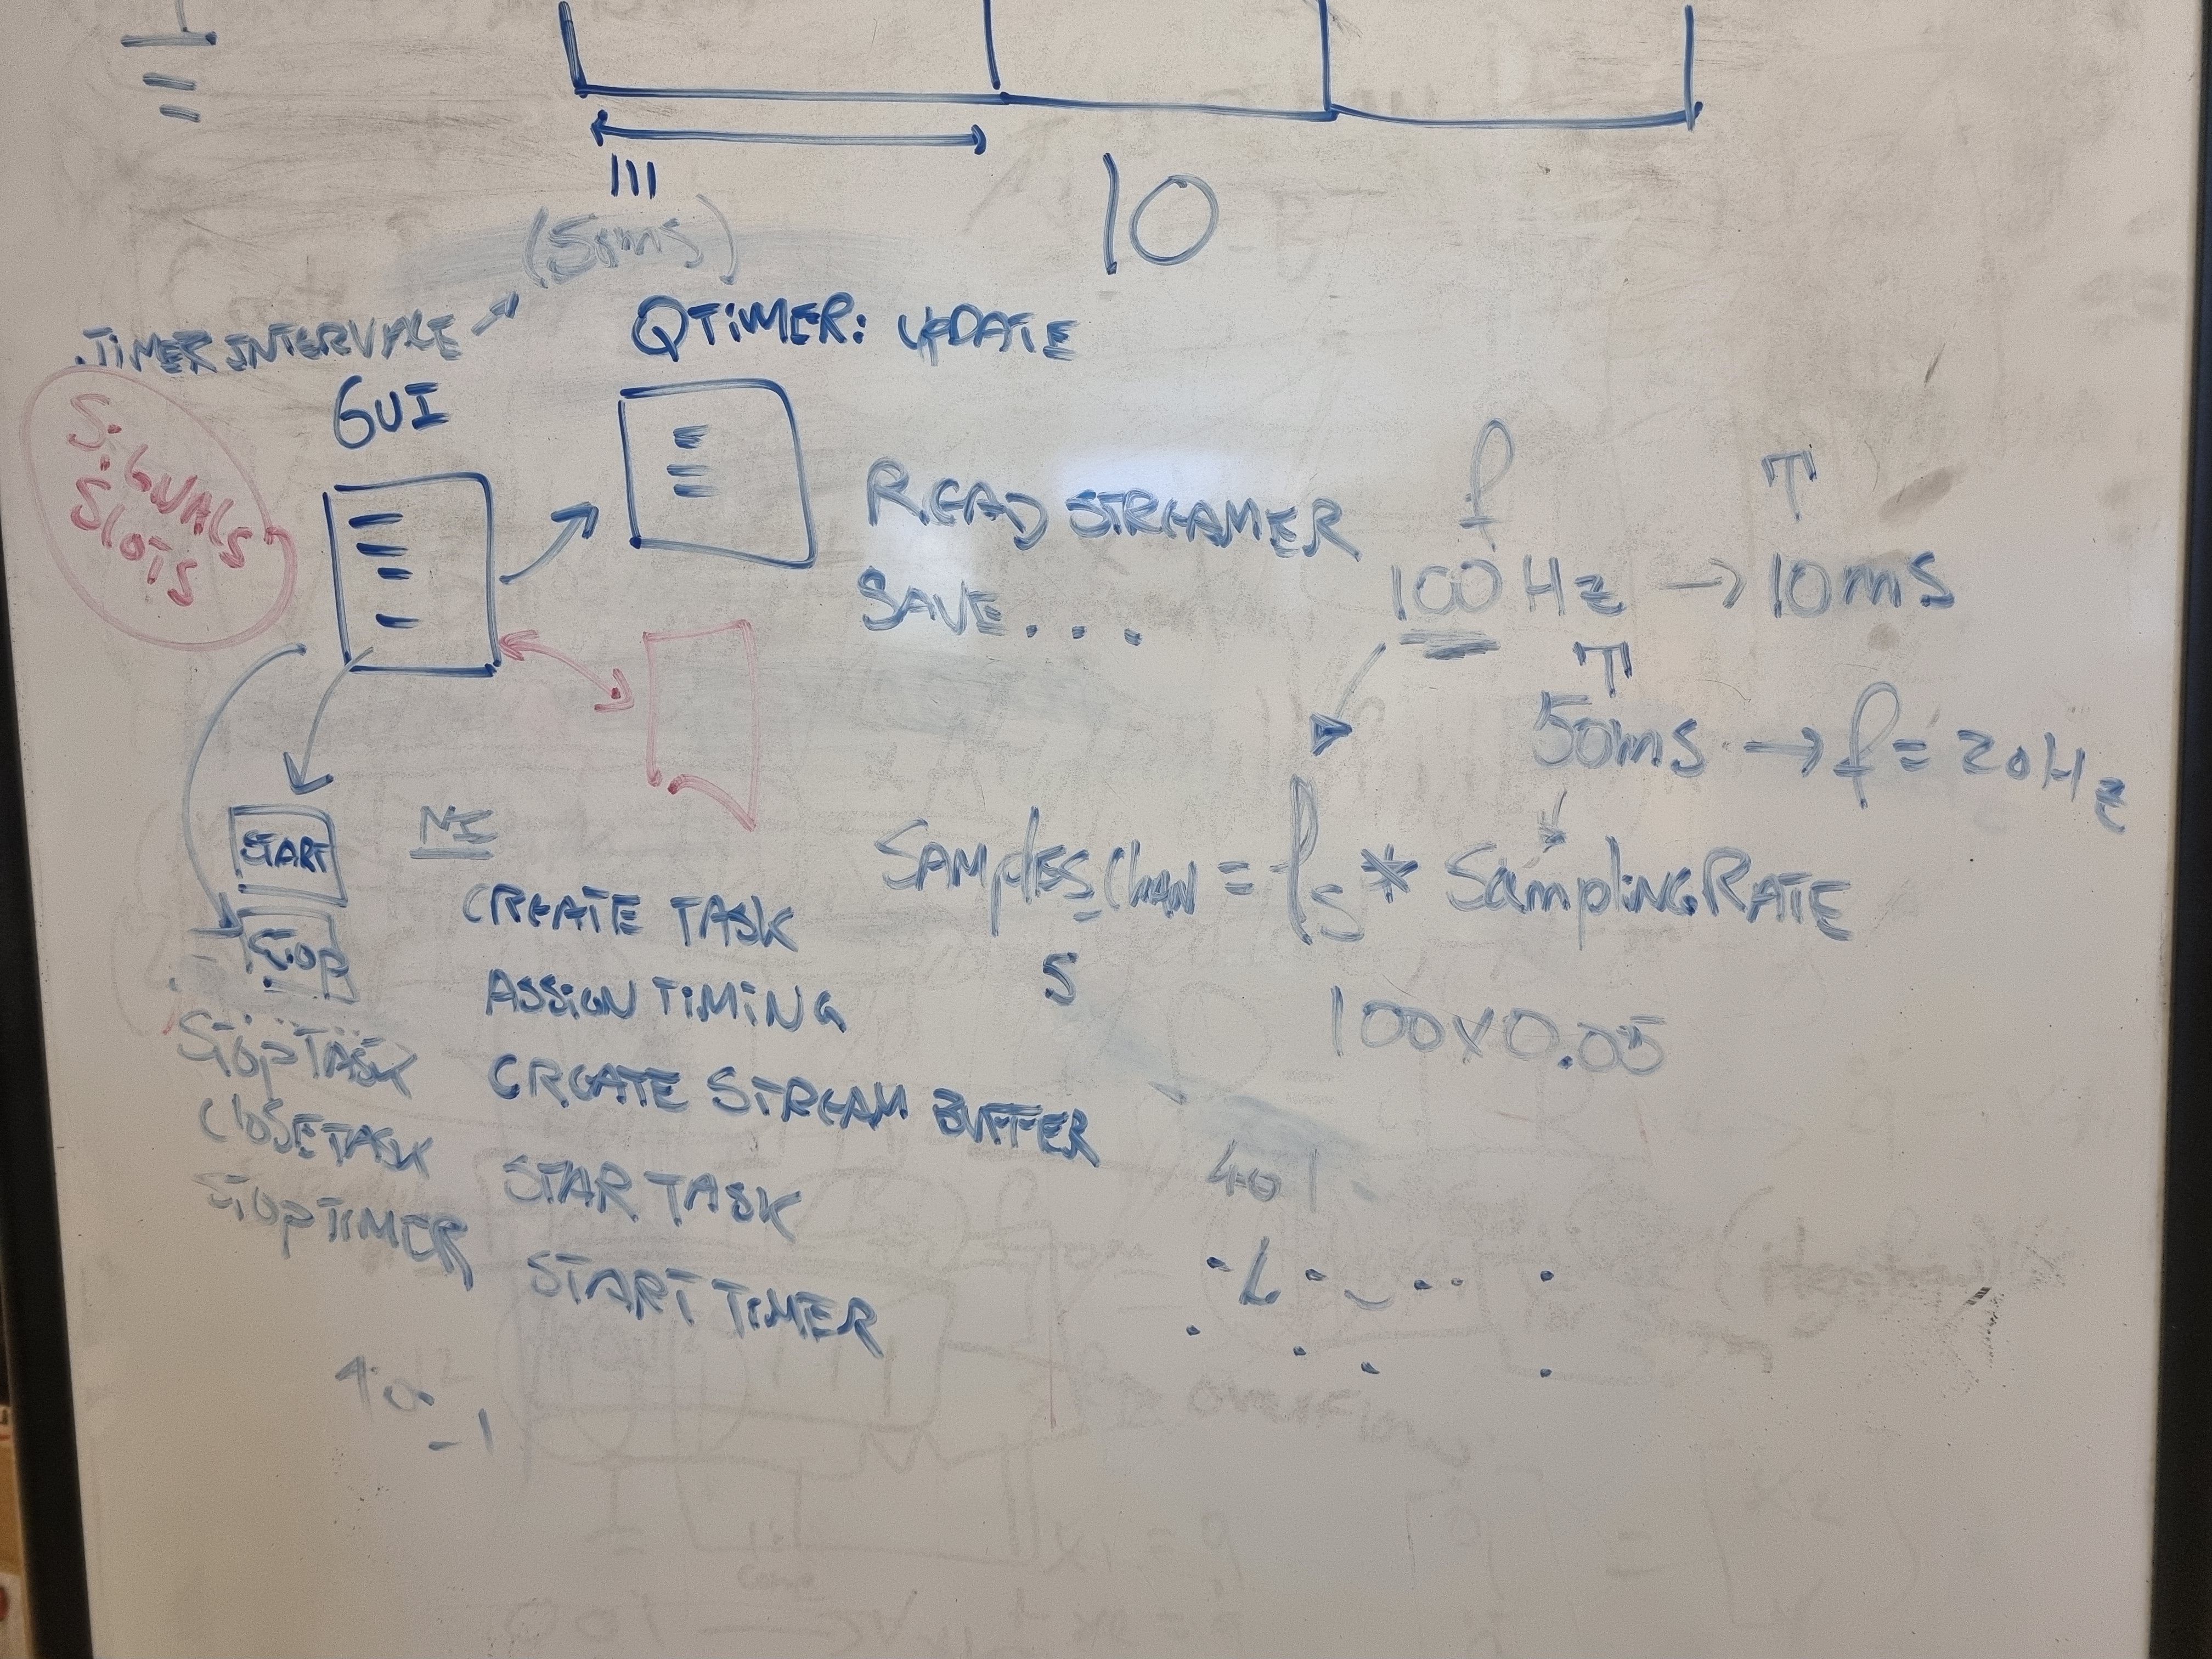 10
TIMER INTERVALE
QTIMER: UPDATE
GUI
SIGNALS
SLOTS
READ STREAMER
SAVE...
f
T
100 Hz → 10ms
T
50ms → f = 20Hz
START
STOP
NI
CREATE TASK
ASSIGN TIMING
CREATE STREAM BUFFER
STAR TASK
START TIMER
STOPTASK
CLOSETASK
STOPTIMER
SAMPLES_CHAN = fs * SAMPLINGRATE
5
100x0.05